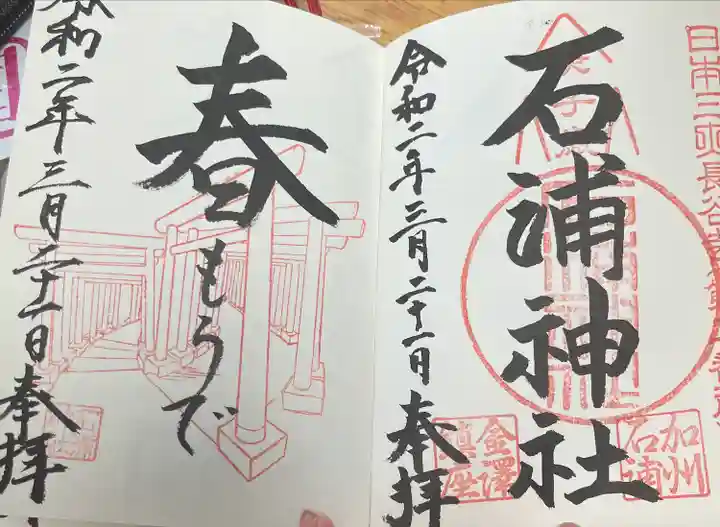 石浦神社
令和二年三月二十一日
奉拝
加州
石浦
金澤
鎮座
春もうで
令和二年三月二十一日
奉拝